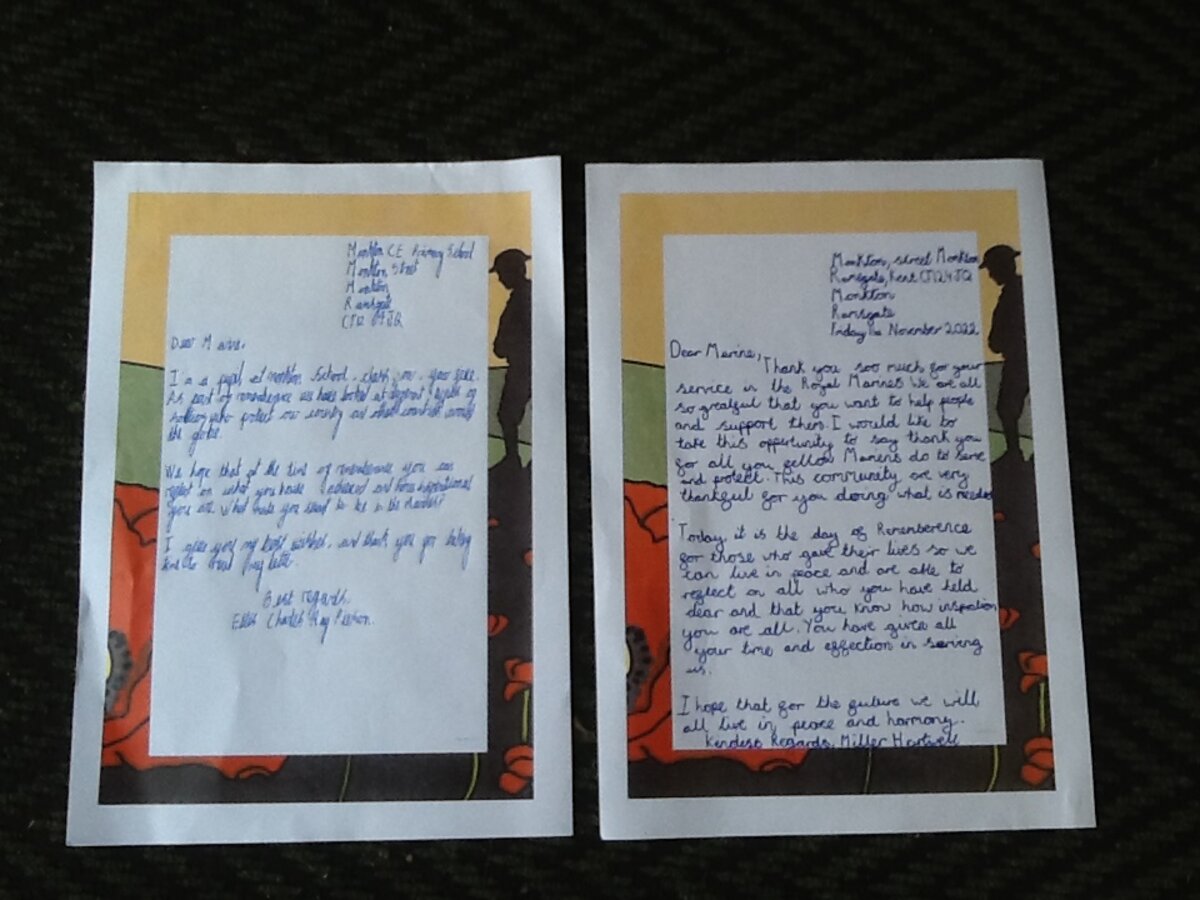 Monkton CE Primary School
Monkton Street
Monkton
Ramsgate
CT12 4JQ
Dear Marine,
I'm a pupil at monkton School,
As part of remembrance we have looked at different
who protect our country and other countries around
the globe.
We hope that at the time of remembrance you can
reflect on what you have achieved and how inspirational
you are. What made you want to be in the Marines?
I give you my best wishes, and thank you for taking
time to read my letter.
Best regards,
Charles Ray
Monkton, street Monkton
Ramsgate, Kent CT12 4JQ
Monkton
Ramsgate
Friday 11th November 2022
Dear Marine,
Thank you soo much for your
service in the Royal Marines We are all
so greatful that you want to help people
and support them. I would like to
take this oppertunity to say thank you
for all you fellow Mariens do to serve
and protect. This community are very
thankful for you doing what is needed
Today it is the day of Rememberence
for those who gave their lives so we
can live in peace and are able to
reflect on all who you have held
dear and that you know how inspation
you are all. You have given all
your time and effection in serving
us.
I hope that for the future we will
all live in peace and harmony.
Kendest Regards, Miller Hartwell